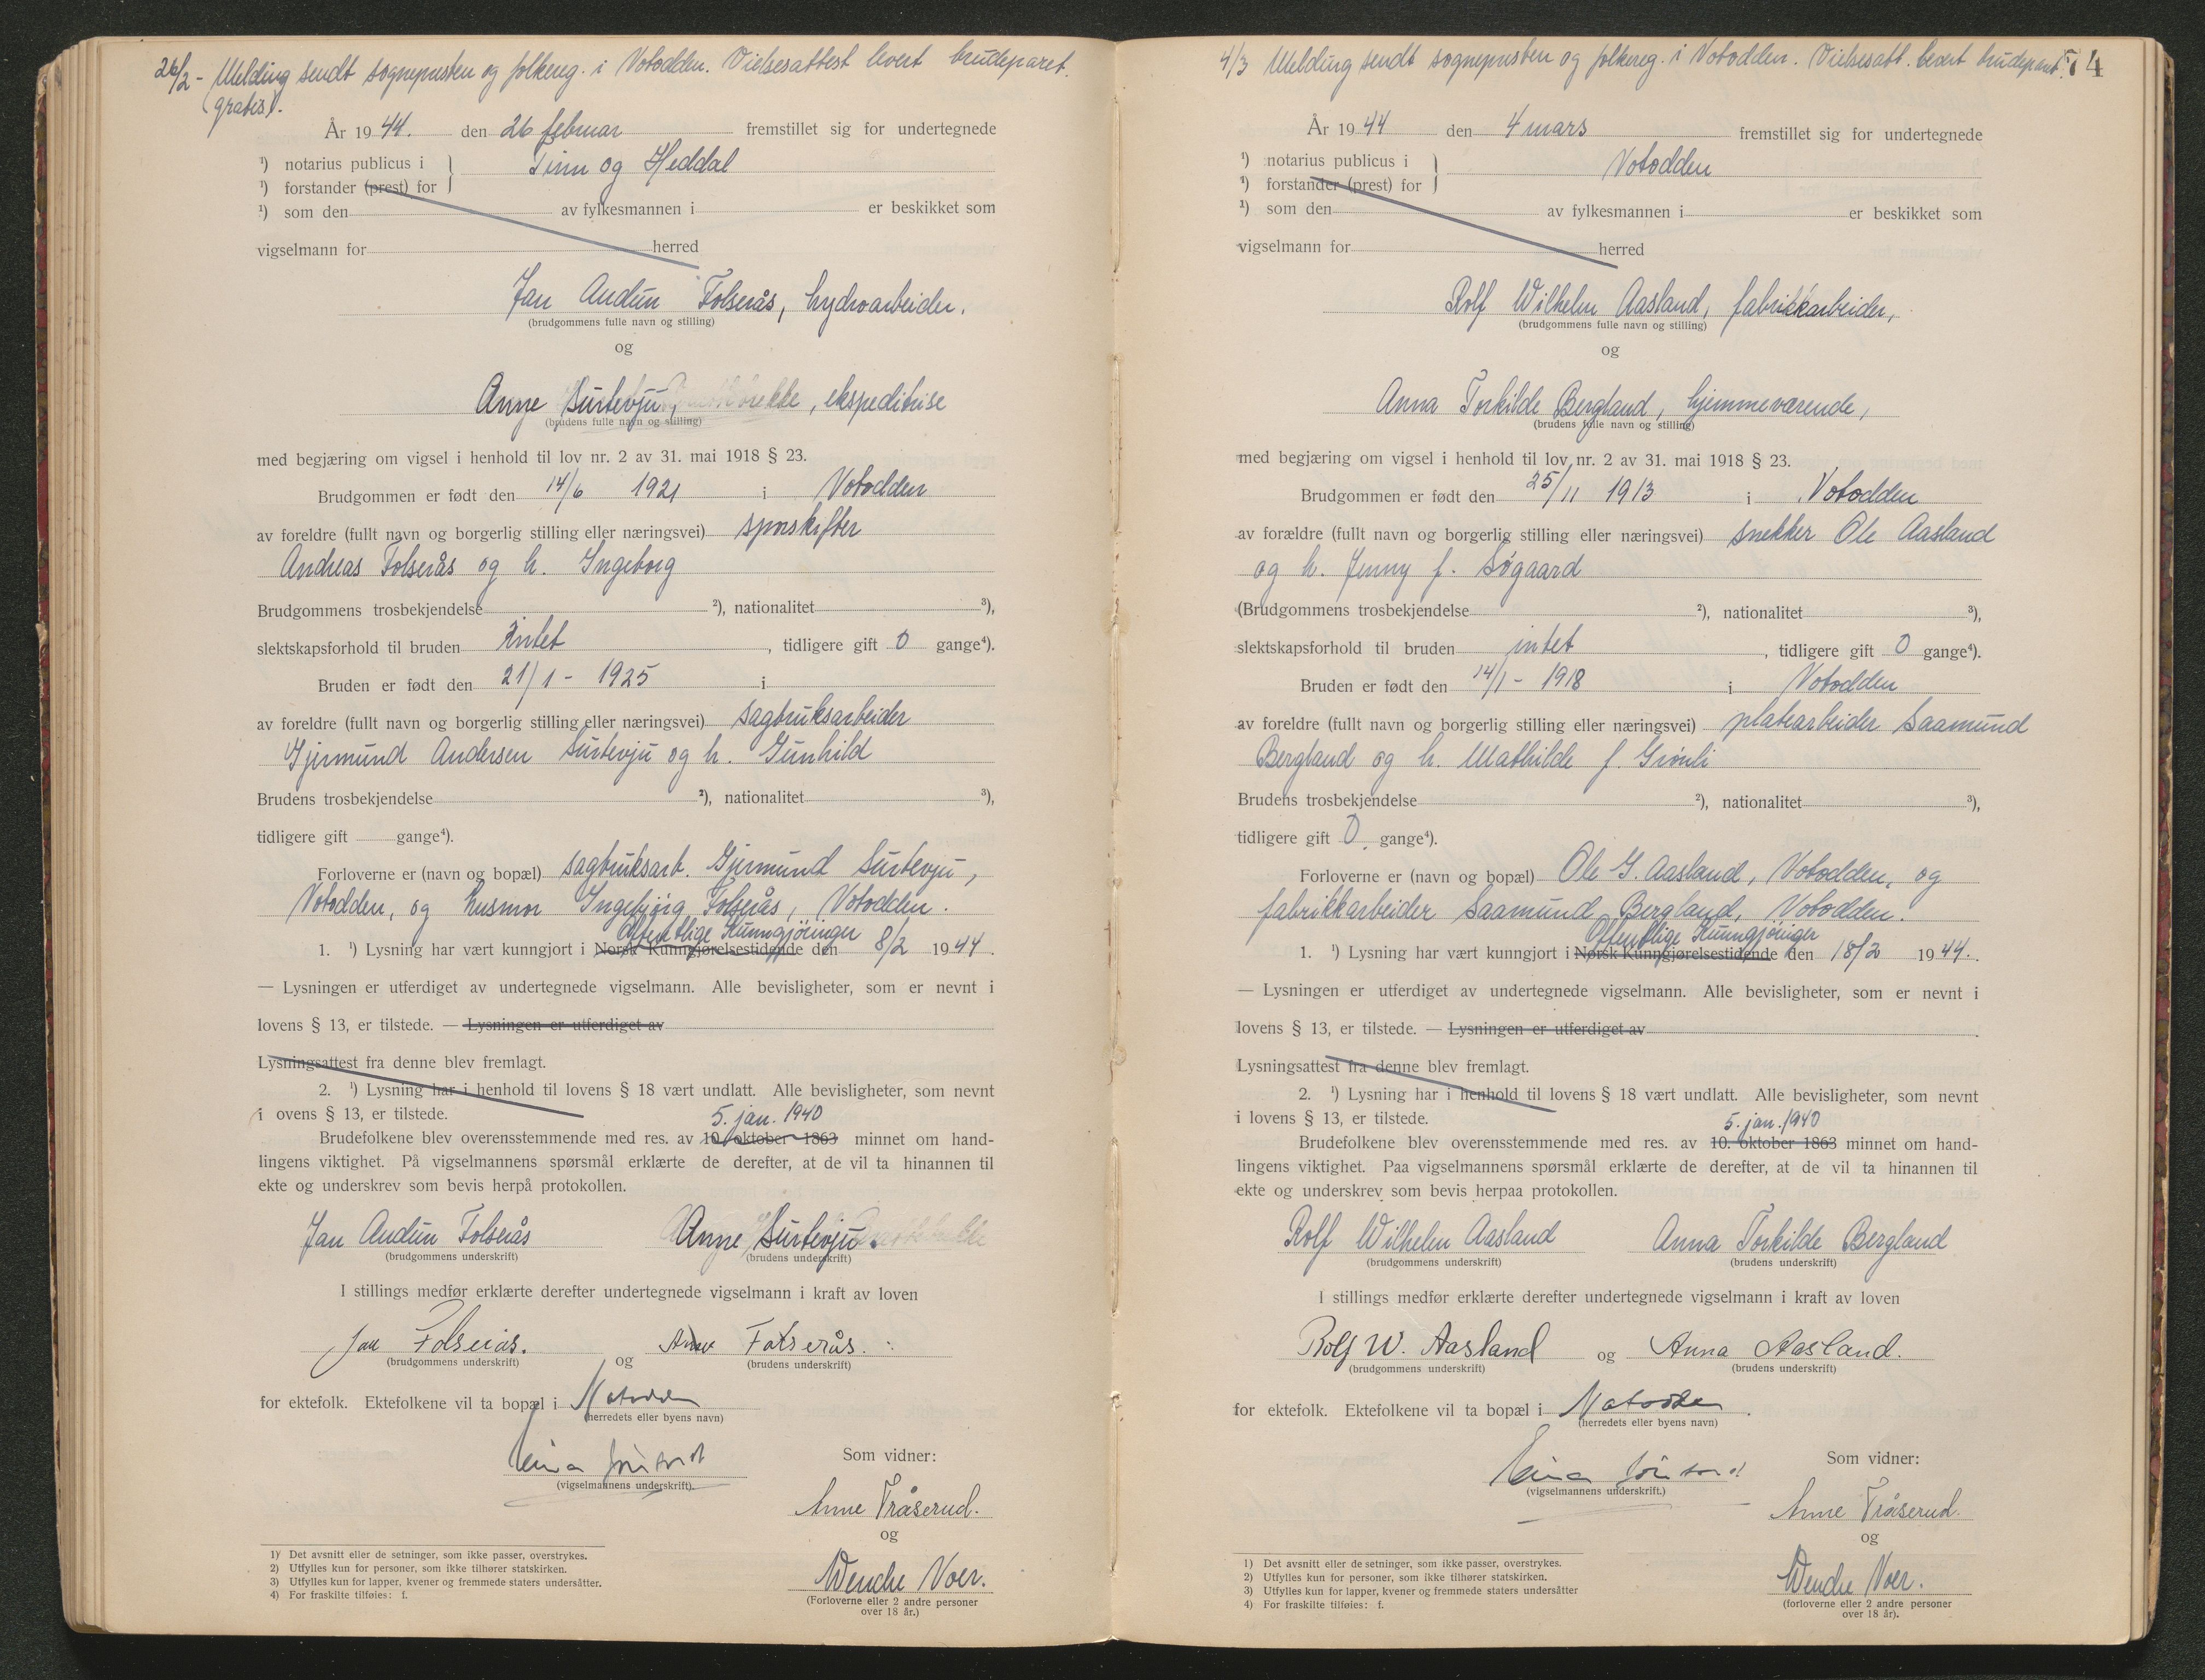 26/2 - Melding sendt sogneprsten og folkereg. i Notodden. Vielsesattest levert brudeparet.
(gratis).
År 1944. den 26 februar fremstillet sig for undertegnede
¹) notarius publicus i } Tinn og Heddal
¹) forstander (prest) for
¹) som den av fylkesmannen i er beskikket som
vigselmann for herred
Jan Audun Folserås, hydroarbeider.
(brudgommens fulle navn og stilling)
og
Anne Surtevju, ekspeditrise
(brudens fulle navn og stilling)
med begjæring om vigsel i henhold til lov nr. 2 av 31. mai 1918 § 23.
Brudgommen er født den 14/6 1921 i Notodden
av foreldre (fullt navn og borgerlig stilling eller næringsvei) sporskifter
Andreas Folserås og h. Ingeborg
Brudgommens trosbekjendelse ²), nationalitet ³),
slektskapsforhold til bruden Intet, tidligere gift 0 gange⁴).
Bruden er født den 21/1 - 1925 i
av foreldre (fullt navn og borgerlig stilling eller næringsvei) sagbruksarbeider
Gjermund Andersen Surtevju og h. Gunhild
Brudens trosbekjendelse ²), nationalitet ³),
tidligere gift gange⁴).
Forloverne er (navn og bopæl) sagbruksarb. Gjermund Surtevju,
Notodden, og husmor Ingebjørg Folserås, Notodden.
Offentlige Kunngjøringer
1. ¹) Lysning har vært kunngjort i Norsk Kunngjørelsestidende den 8/2 1944.
— Lysningen er utferdiget av undertegnede vigselmann. Alle bevisligheter, som er nevnt i
lovens § 13, er tilstede. — Lysningen er utferdiget av
Lysningsattest fra denne blev fremlagt.
2. ¹) Lysning har i henhold til lovens § 18 vært undlatt. Alle bevisligheter, som nevnt
i ovens § 13, er tilstede.
5. jan. 1940
Brudefolkene blev overensstemmende med res. av 10. oktober 1863 minnet om hand-
lingens viktighet. På vigselmannens spørsmål erklærte de derefter, at de vil ta hinannen til
ekte og underskrev som bevis herpå protokollen.
Jan Audun Folserås Anne Surtevju.
(brudgommens underskrift) (brudens underskrift)
I stillings medfør erklærte derefter undertegnede vigselmann i kraft av loven
Jan Folserås. og Anne Folserås.
(brudgommens underskrift) (brudens underskrift)
for ektefolk. Ektefolkene vil ta bopæl i Notodden
(herredets eller byens navn)
Som vidner:
(vigselmannens underskrift).
Anne Tråserud.
og
Wenche Voer.
(Forloverne eller 2 andre personer
over 18 år.)
1) Det avsnitt eller de setninger, som ikke passer, overstrykes.
2) Utfylles kun for personer, som ikke tilhører statskirken.
3) Utfylles kun for lapper, kvener og fremmede staters undersåtter.
4) For fraskilte tilføies: f.
4/3 Melding sendt sogneprsten og folkereg. i Notodden. Vielsesatt. levert brudeparet. 74
År 1944 den 4 mars fremstillet sig for undertegnede
¹) notarius publicus i } Notodden
¹) forstander (prest) for
¹) som den av fylkesmannen i er beskikket som
vigselmann for herred
Rolf Wilhelm Aasland, fabrikkarbeider,
(brudgommens fulle navn og stilling)
og
Anna Torkilde Bergland, hjemmeværende,
(brudens fulle navn og stilling)
med begjæring om vigsel i henhold til lov nr. 2 av 31. mai 1918 § 23.
Brudgommen er født den 25/11 1913 i Notodden
av forældre (fullt navn og borgerlig stilling eller næringsvei) snekker Ole Aasland
og h. Jenny f. Søgaard
(Brudgommens trosbekjendelse ²), nationalitet ³),
slektskapsforhold til bruden intet, tidligere gift 0 gange⁴).
Bruden er født den 14/1 - 1918 i Notodden
av foreldre (fullt navn og borgerlig stilling eller næringsvei) platearbeider Saamund
Bergland og h. Mathilde f. Grønli
Brudens trosbekjendelse ²), nationalitet ³),
tidligere gift 0 gange⁴).
Forloverne er (navn og bopæl) Ole G. Aasland, Notodden, og
fabrikkarbeider Saamund Bergland, Notodden.
Offentlige Kunngjøringer
1. ¹) Lysning har vært kunngjort i Norsk Kunngjørelsestidende den 18/2 1944.
— Lysningen er utferdiget av undertegnede vigselmann. Alle bevisligheter, som er nevnt i
lovens § 13, er tilstede. — Lysningen er utferdiget av
Lysningsattest fra denne blev fremlagt.
2. ¹) Lysning har i henhold til lovens § 18 vært undlatt. Alle bevisligheter, som nevnt
i lovens § 13, er tilstede.
5. jan. 1940
Brudefolkene blev overensstemmende med res. av 10. oktober 1863 minnet om hand-
lingens viktighet. Paa vigselmannens spørsmål erklærte de derefter, at de vil ta hinannen til
ekte og underskrev som bevis herpaa protokollen.
Rolf Wilhelm Aasland Anna Torkilde Bergland
(brudgommens underskrift) (brudens underskrift)
I stillings medfør erklærte derefter undertegnede vigselmann i kraft av loven
Rolf W. Aasland og Anna Aasland.
(brudgommens underskrift) (brudens underskrift)
for ektefolk. Ektefolkene vil ta bopæl i Notodden.
(herredets eller byens navn)
Som vidner:
(vigselmannens underskrift.)
Anne Tråserud.
og
Wenche Voer.
(forloverne eller 2 andre personer
over 18 år).
1) Det avsnitt eller de setninger, som ikke passer, overstrykes.
2) Utfylles kun for personer, som ikke tilhører statskirken.
3) Utfylles kun for lapper, kvener og fremmede staters undersåtter
4) For fraskilte tilføies: f.